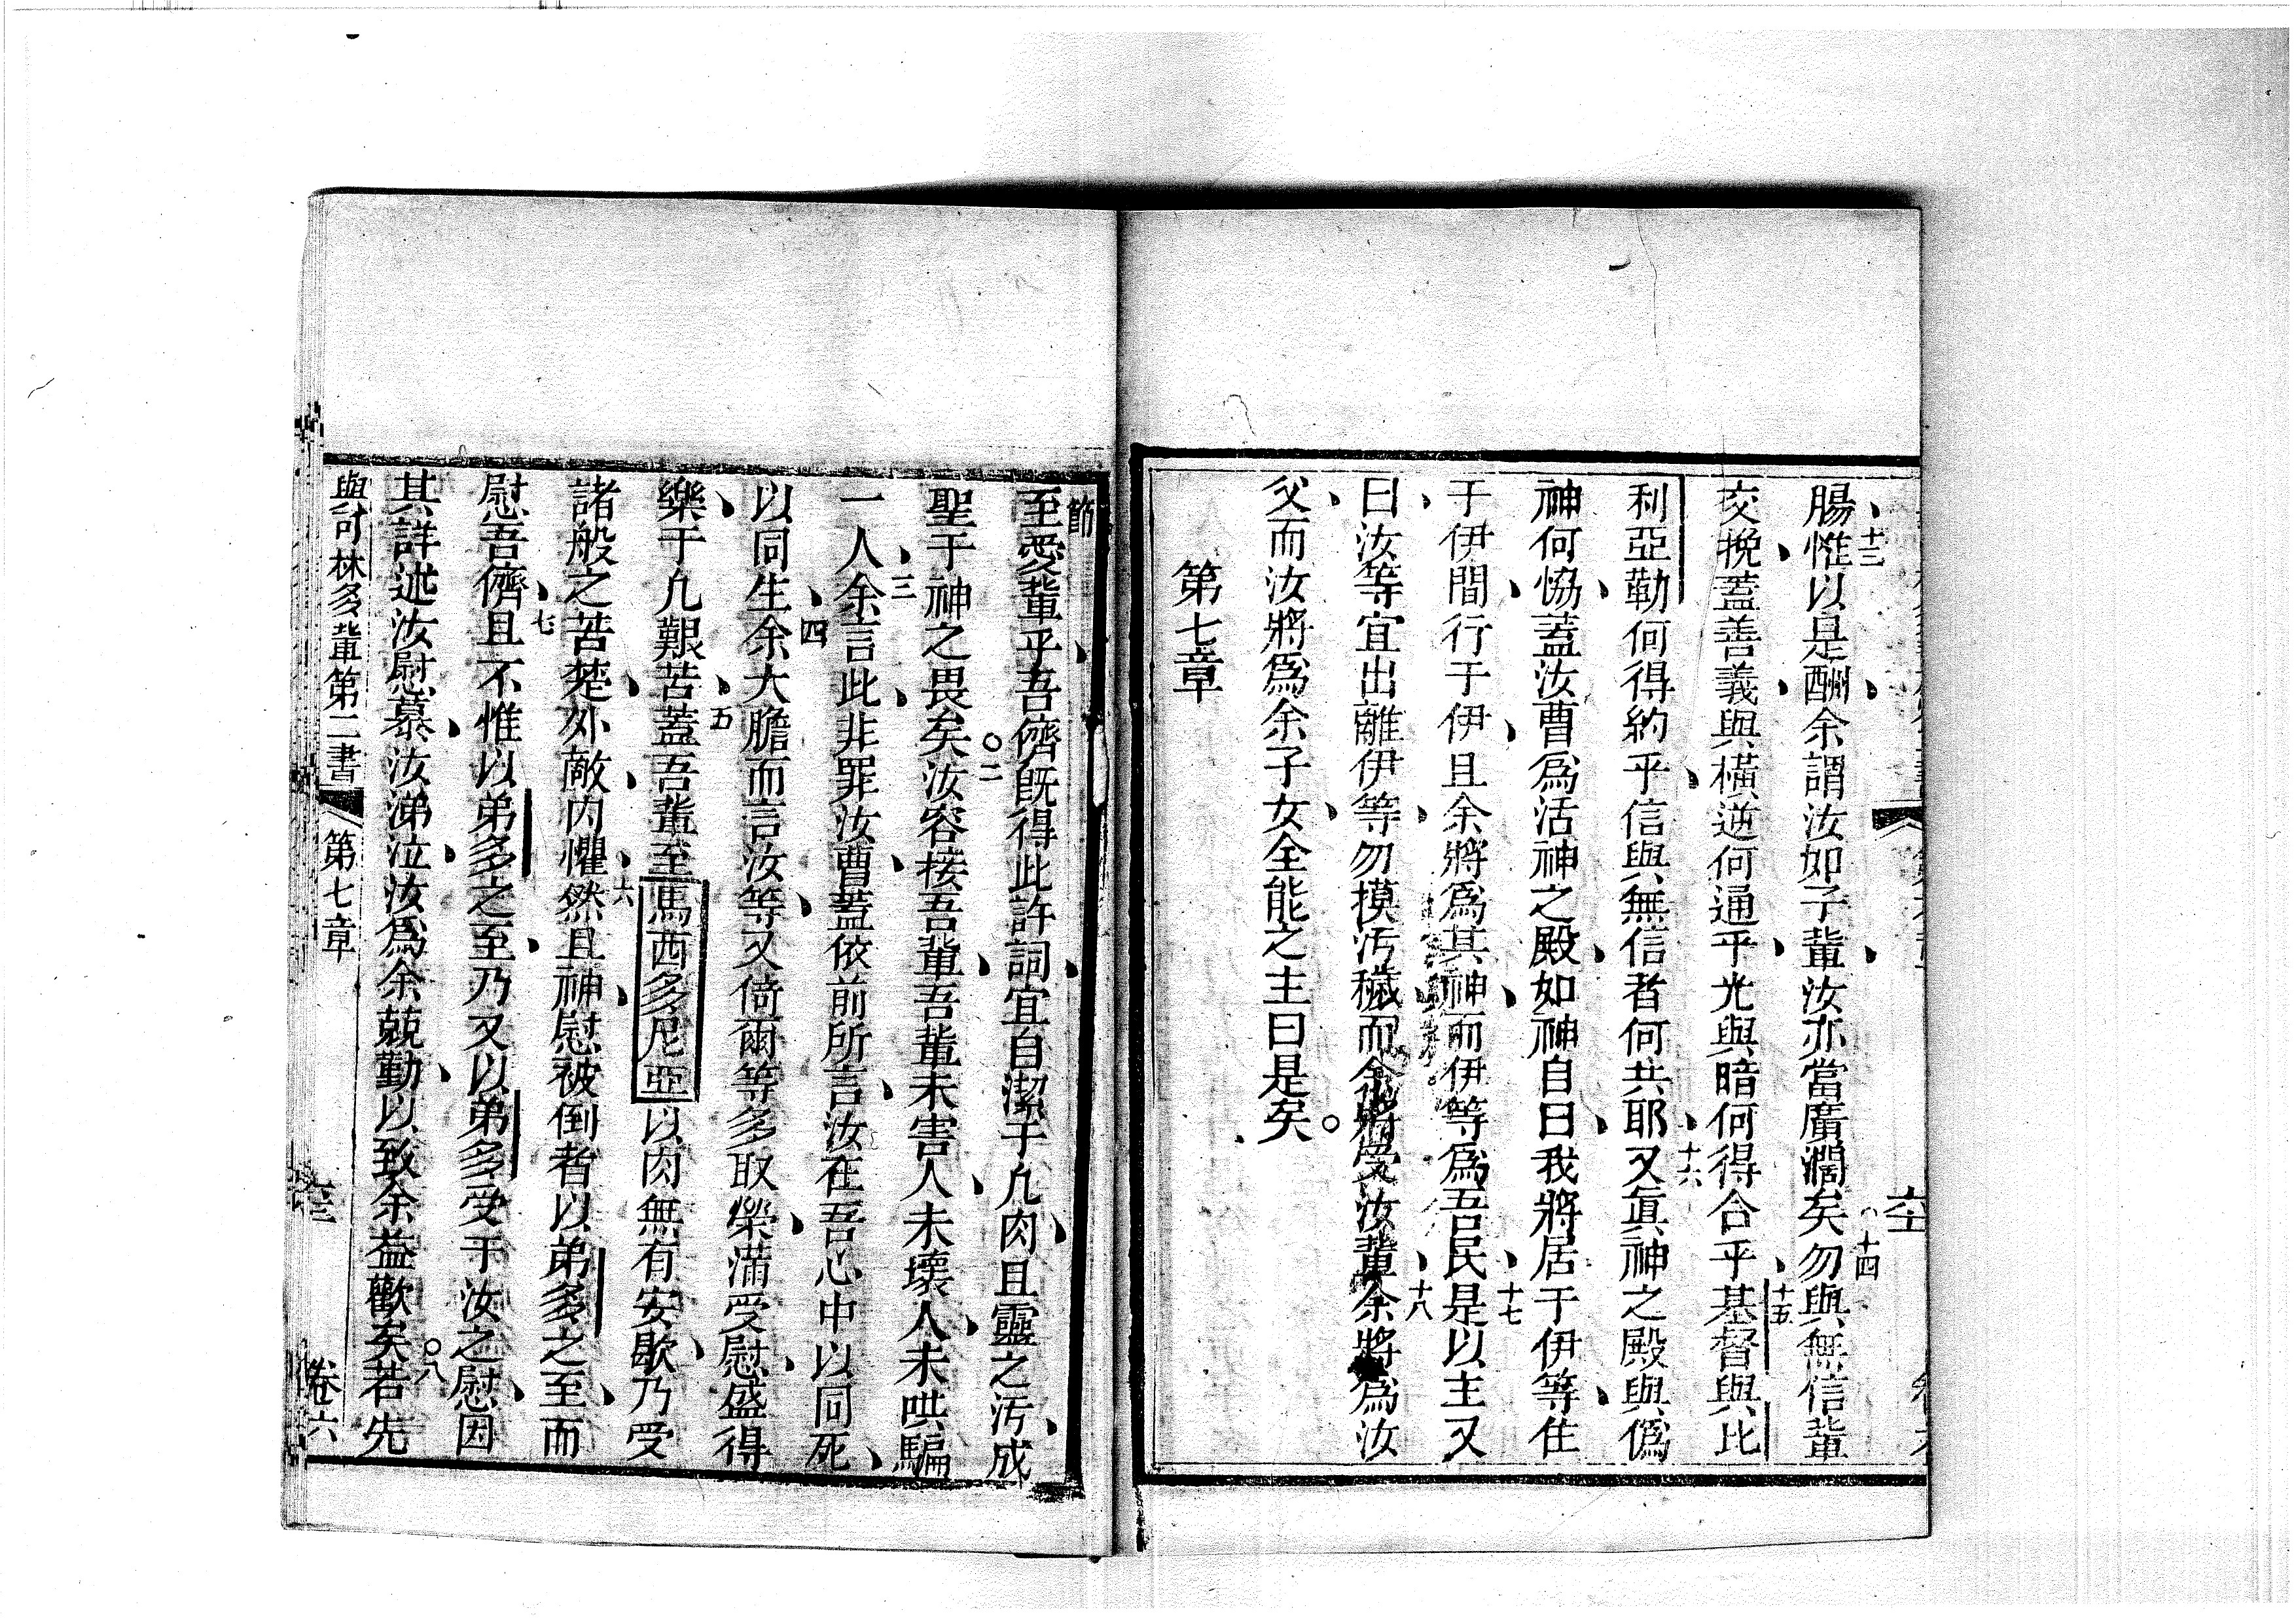 腸、十三惟以是酬、余謂汝如子輩、汝亦當廣濶矣。十四勿與無信輩
交挽、蓋善義、與橫逆何通乎、光與暗何得合乎、十五基督與比
利亞勒何得約乎、信與無信者何共耶、十六又眞神之殿與僞
神何恊、蓋汝曹爲活神之殿、如神自曰、我將居于伊等、住
于伊間、行于伊、且余將爲其神、而伊等爲吾民、十七是以主又
曰、汝等宜出離伊等、勿摸汚穢、而余將受汝輩、十八余將爲汝
父、而汝將爲余子女、全能之主曰是矣。
第七章
節
至愛輩乎、吾儕旣得此許詞、宜自潔于凢肉、且靈之汚、成
聖于神之畏矣。二汝容接吾輩、吾輩未害人、未壞人、未哄騙
一人、三余言此、非罪汝曹、蓋依前所言、汝在吾心中以同死、
以同生、四余大膽而言汝等、又倚爾等多取榮、滿受慰、盛得
樂、于凢艱苦、五蓋吾輩至馬西多尼亞以肉無有安歇、乃受
諸般之苦楚、外敵、內懼、六然且神、慰被倒者、以弟多之至、而
慰吾儕、七且不惟以弟多之至、乃又以弟多受于汝之慰、因
其詳述汝慰慕、汝涕泣、汝爲余兢勤、以致余益歡矣。八若先
與可林多輩第二書 第七章 卷六